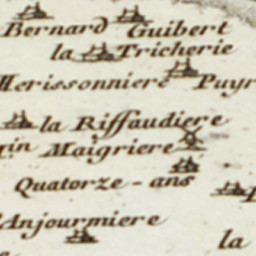 Bernard Guibert
la Tricherie
Merissonniere Puyr
la Riffaudiere
Maigriere
Quatorze - ans
Anjourmiere
la